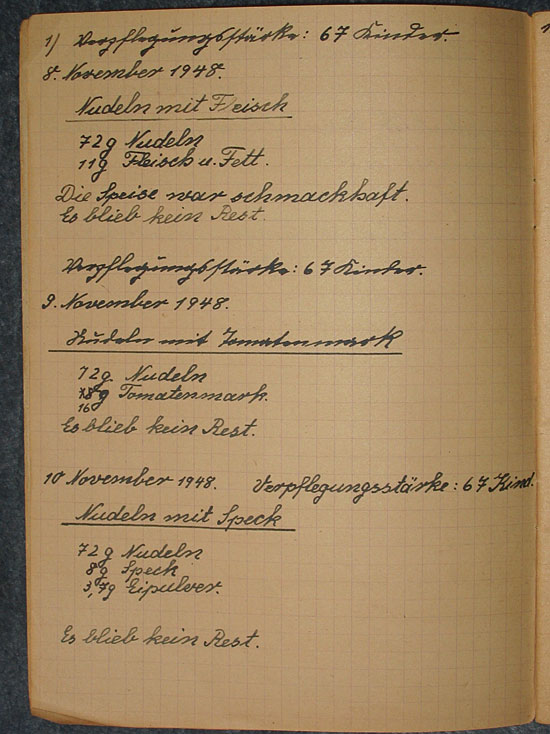 1) Verpflegungsstärke: 67 Kinder.
8. November 1948.
Nudeln mit Fleisch
72g Nudeln
11g Fleisch u. Fett.
Die Speise war schmackhaft.
Es blieb kein Rest.
Verpflegungsstärke: 67 Kinder.
9. November 1948.
Nudeln mit Tomatenmark
72g. Nudeln
18g Tomatenmark.
16
Es blieb kein Rest.
10 November 1948. Verpflegungsstärke: 67 Kind.
Nudeln mit Speck
72g Nudeln
8g Speck
3,7g Eipulver.
Es blieb kein Rest.